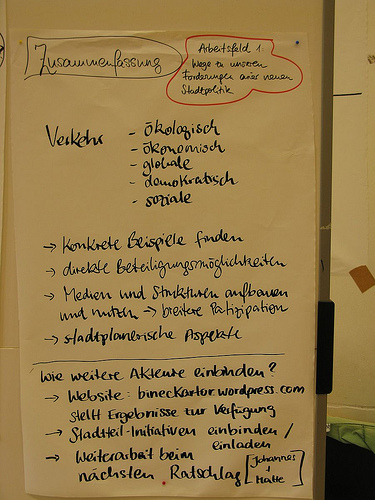 Zusammenfassung
Arbeitsfeld 1:
Wege zu unseren
Forderungen einer neuen
Stadtpolitik
Verkehr - ökologisch
- ökonomisch
- globale
- demokratisch
- soziale
→ konkrete Beispiele finden
→ direkte Beteiligungsmöglichkeiten
→ Medien und Strukturen aufbauen
und nutzen → breitere Partizipation
→ stadtplanerische Aspekte
Wie weitere Akteure einbinden?
→ Website: bineckartor.wordpress.com
stellt Ergebnisse zur Verfügung
→ Stadtteil-Initiativen einbinden /
einladen
→ Weiterarbeit beim
nächsten Ratschlag [Johannes
+ Malte]